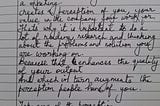 a reputation.
creates a perception of you, your
value in the company you work or.
That's why it is important to do a
lot of reading, research and thinking
about the problems and solution you'll
be working on.
Because that enhances the quality
of your output
And what in turn augments the
perception people hend of you.